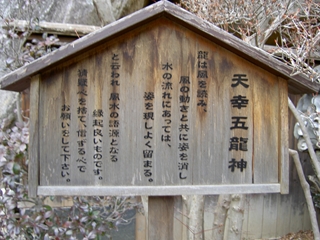 天幸五龍神
龍は風を踏み、
風の動きと共に姿を消し
水の流れにあっては、
姿を現しよく留まる。
と云われ、風水の語源となる
縁起良いものです。
を捨て、信ずる心で
お願いをして下さい。